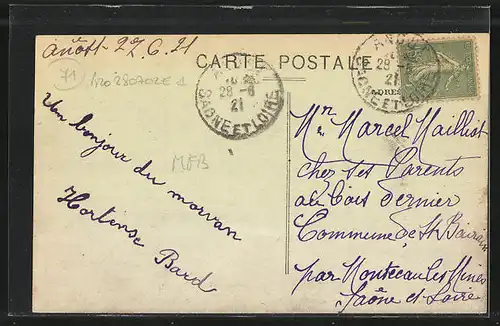 Anost 27.6.21
CARTE POSTALE
71
ANO
28-6
21
SAONE ET LOIRE
ANO
28-
21
SAONE ET LOIRE
MFB
Un bonjour du morvan
Hortense Bard
Mr Marcel Mailliot
chez ses Parents
au Bois dernier
Commune de St Bérain
par Montceau les Mines
Saône et Loire